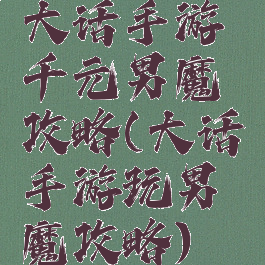 大话手游
千元男魔
攻略(大话
手游玩男
魔攻略)